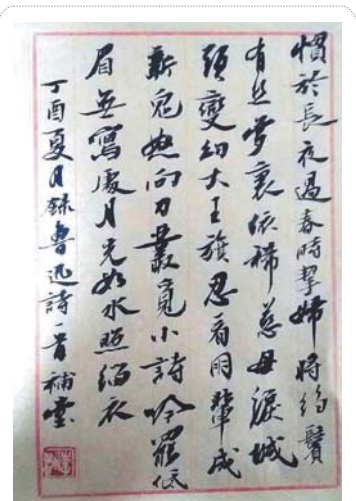 慣於長夜過春時挈婦將雛鬢
有丝夢裏依稀慈母淚城
頭變幻大王旗忍看朋輩成
新鬼怒向刀叢覓小詩吟罷低
眉無寫處月光如水照緇衣
丁酉夏月錄魯迅詩一首 補堂